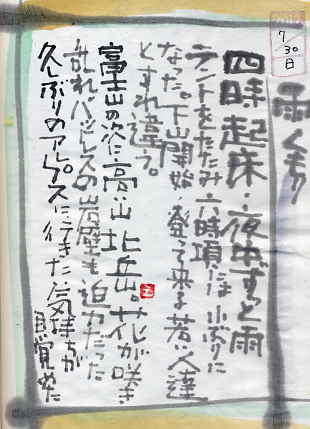 7/30
日
雨くもり
四時起床・夜中ずっと雨
テントをたたみ六時頃には小ぶりに
なった。下山開始・登って来る若い人達
とすれ違う。
富士山の次に高い山北岳。花が咲き
乱れバットレスの岩壁も迫力だった
久しぶりのアルプスに行きた気持ちが
目覚めた